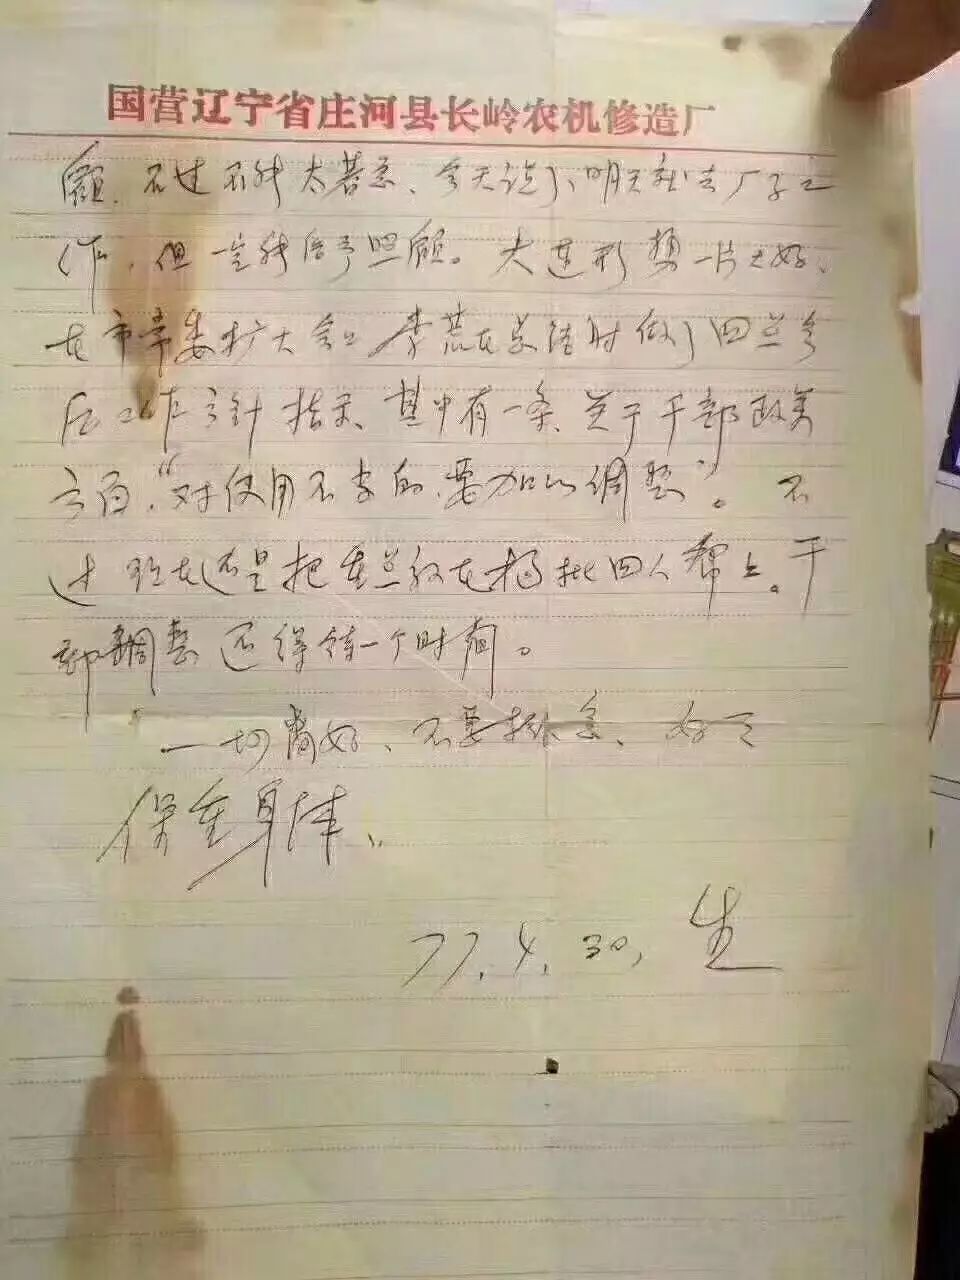 国营辽宁省庄河县长岭农机修造厂
顾、不过不能太着急、今天说了、明天就去厂子工
作，但一定能给予照顾。大连形势一片大好、
在市常委扩大会上 李荒在总结时做了四点今
后工作方针指示、其中有一条、关于干部政策
方面，“对使用不当的、要加以调整”。不
过现在还是把重点放在揭批四人帮上。干
部调整还得待一个时间。
一切都好、不要掛念、好好
保重身体、
77.4.30, 生